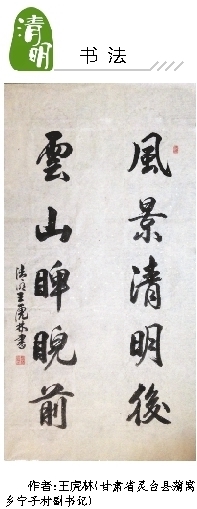 清明
书法
風景清明後
雲山睥睨前
清明王虎林書
作者:王虎林(甘肃省灵台县蒲窝
乡宁子村副书记)